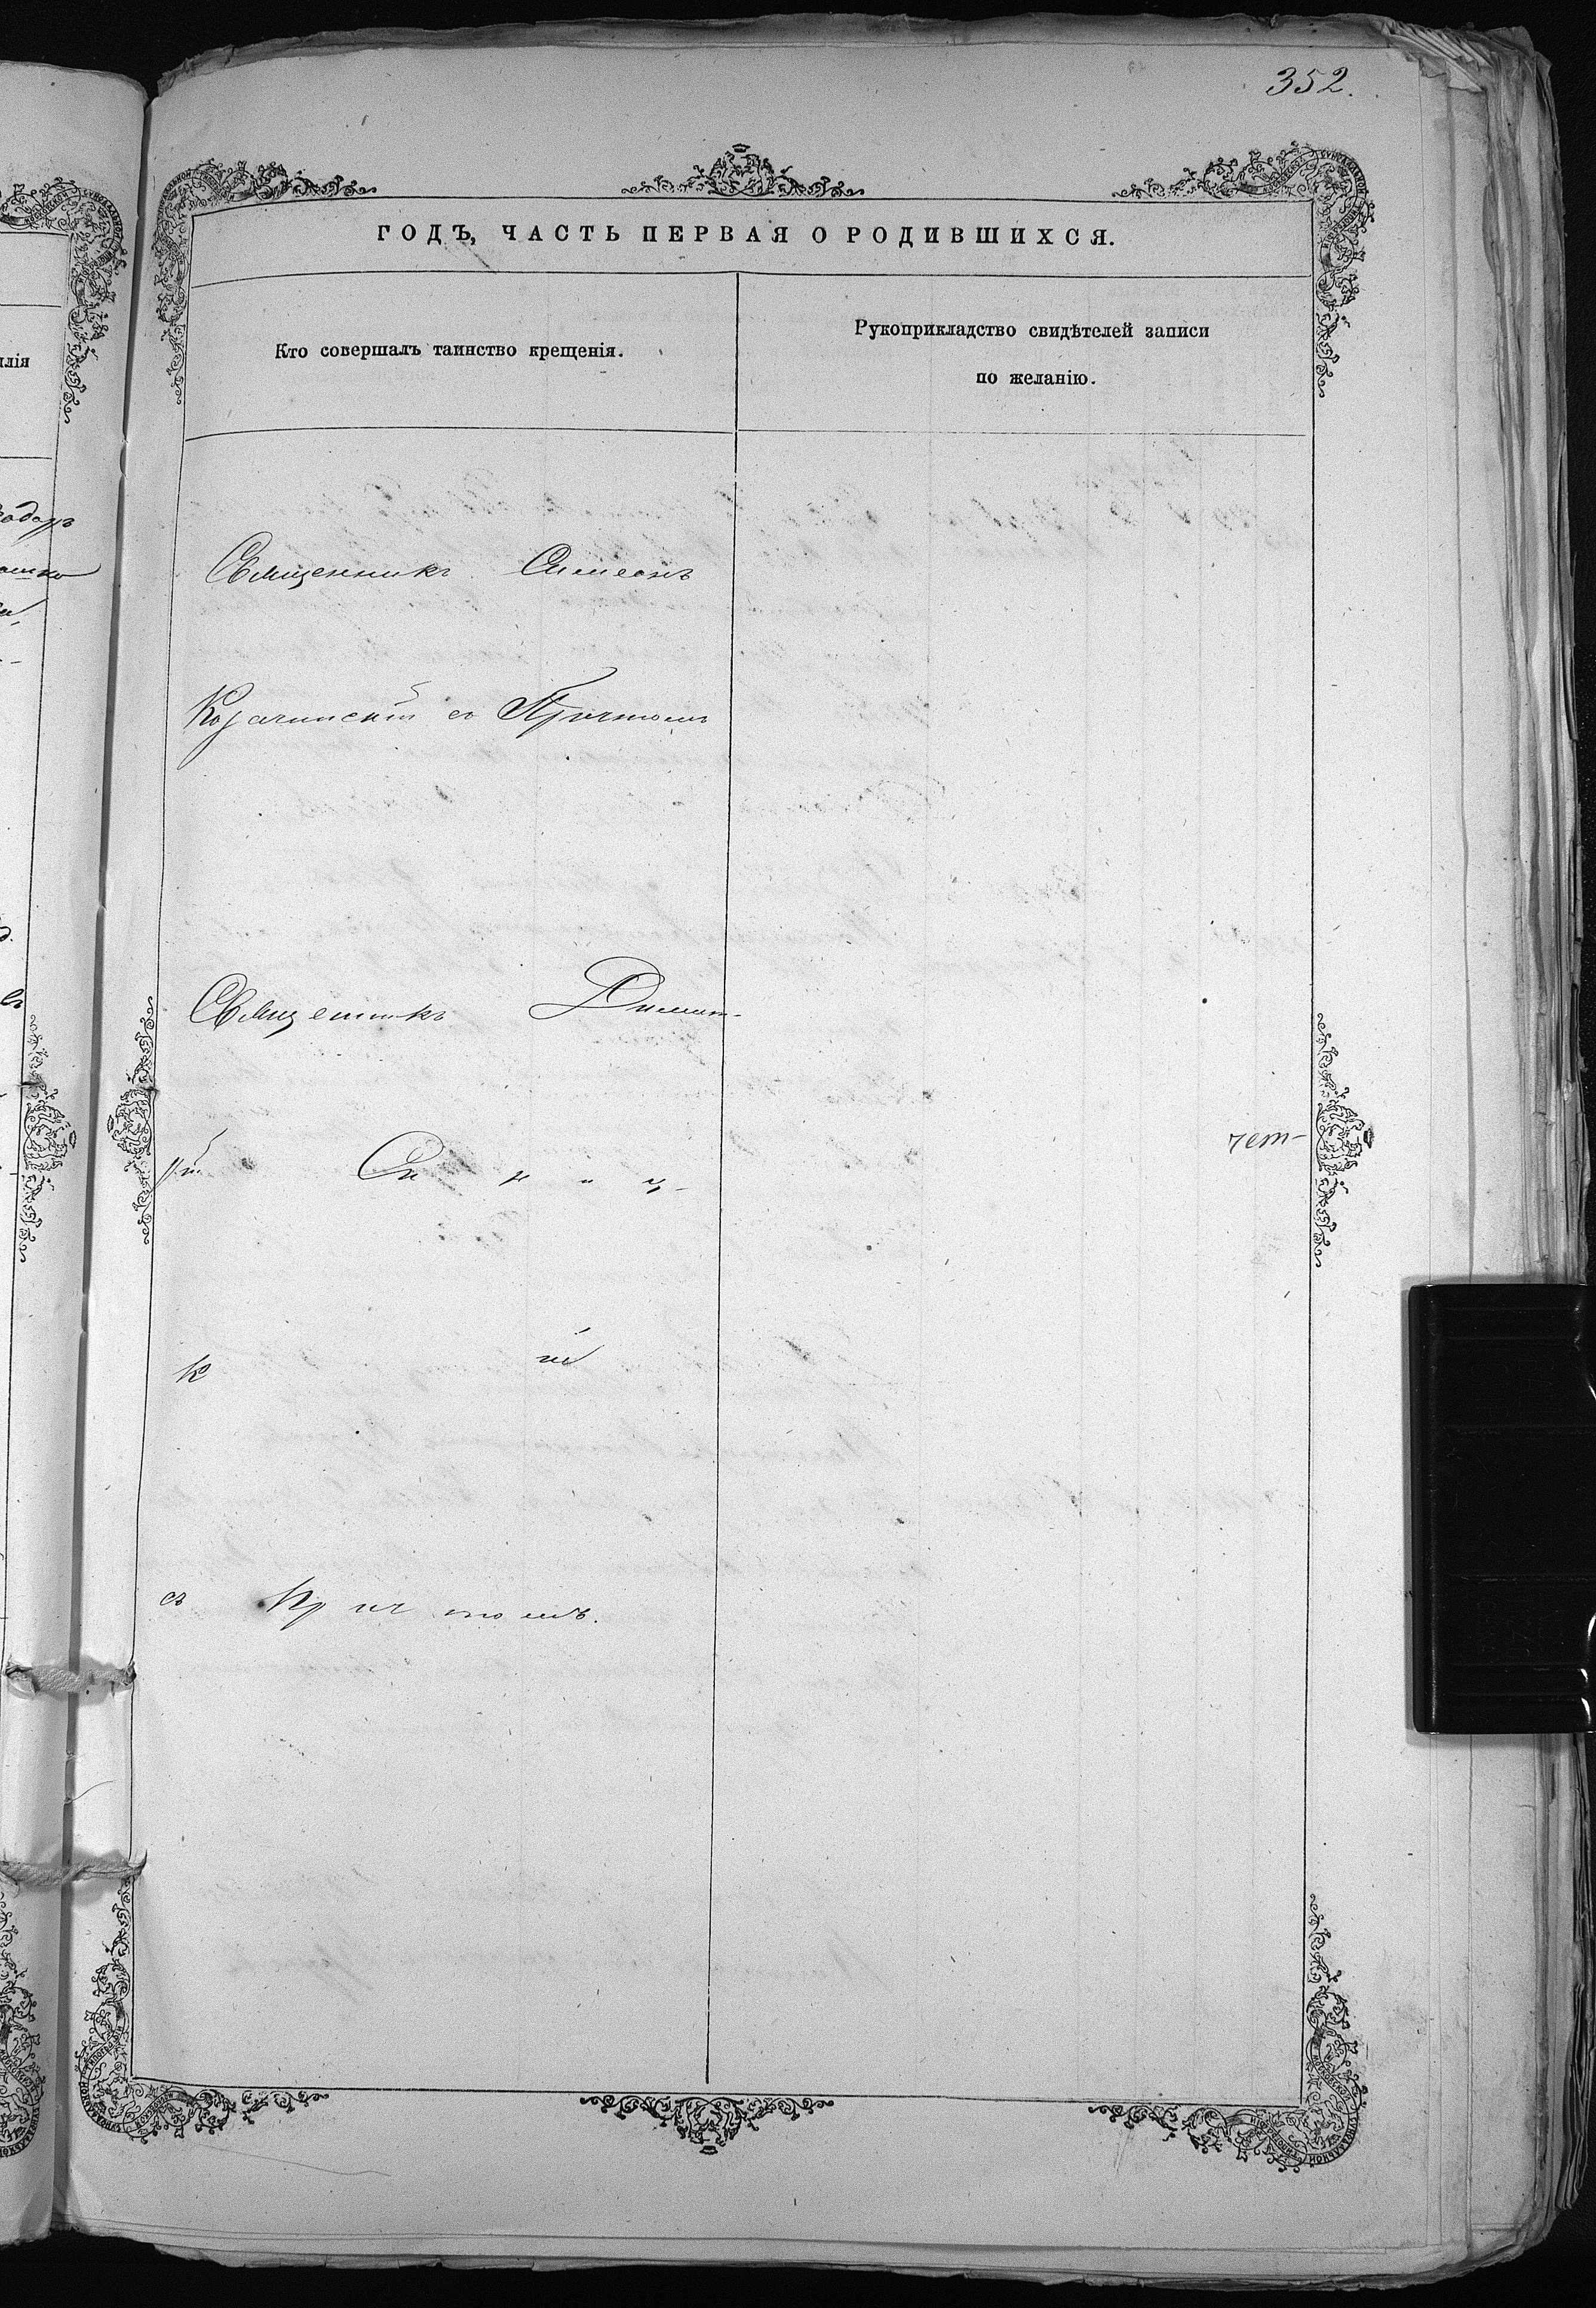 352.
ГОДЪ, ЧАСТЬ ПЕРВАЯ О РОДИВШИХСЯ.
Кто совершалъ таинство крещенія.
Рукоприкладство свидѣтелей записи
по желанію.
Священникъ Симеонъ
Козачинскій съ Причтомъ
Священникъ Димит-
рій Си н и ц-
к ій
съ Причтомъ.